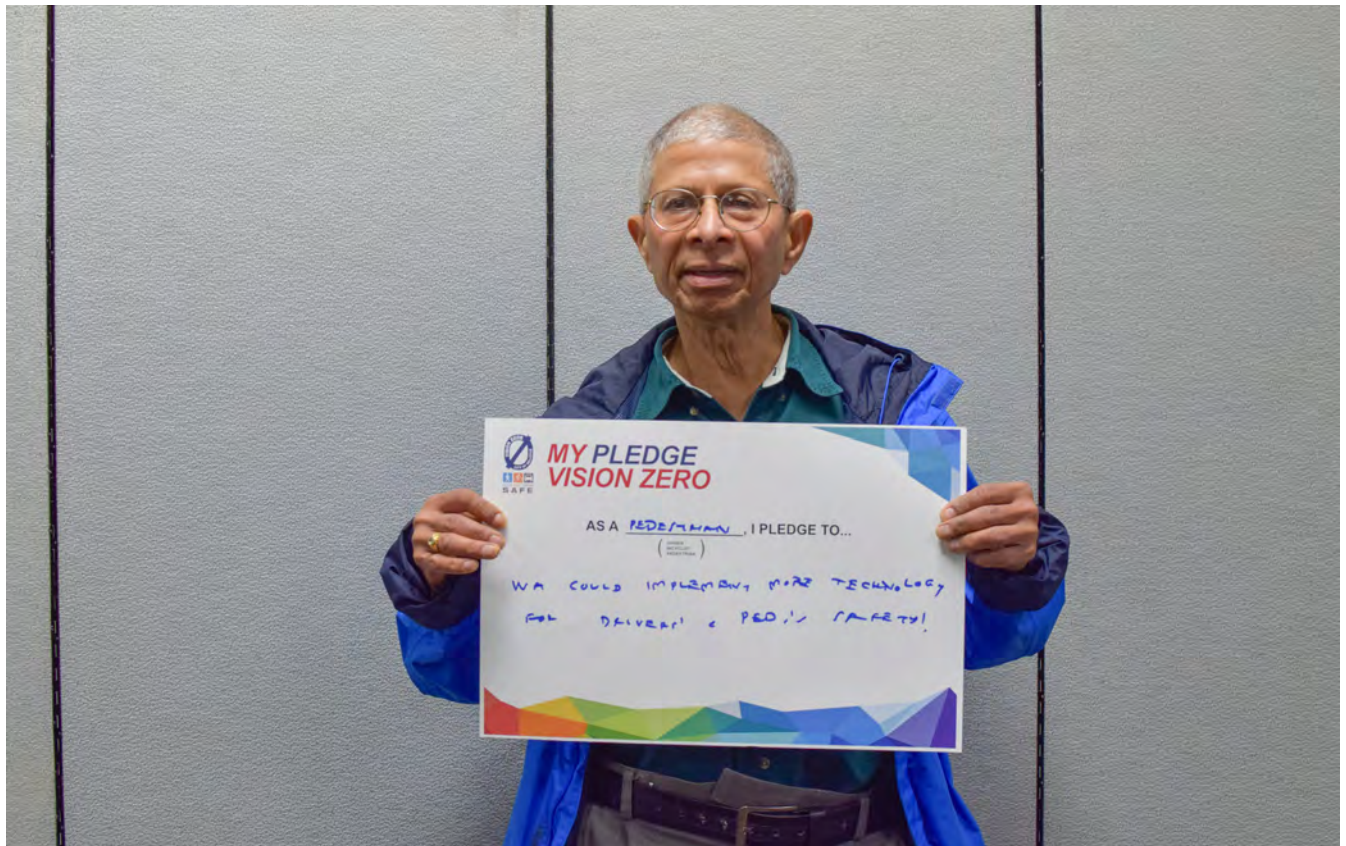 MY PLEDGE
VISION ZERO
SAFE
AS A PEDESTRIAN, I PLEDGE TO...
WA COULD IMPLEMENT MORE TECHNOLOGY
FOR DRIVERS' & PED'S SAFETY!